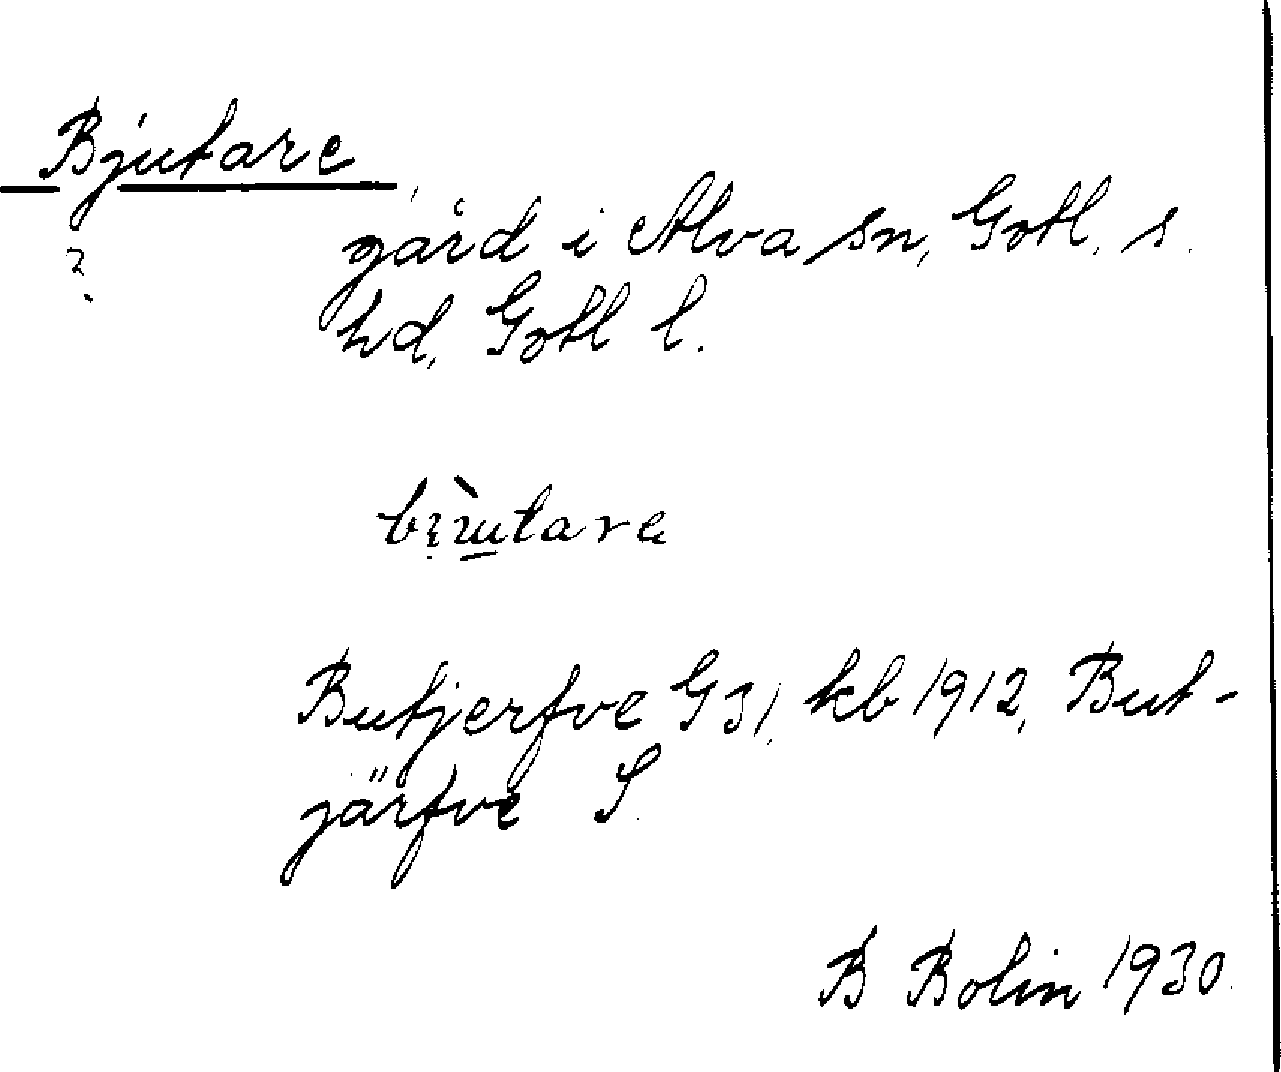 Bjutare
? gård i Alva sn, Gotl. s.
hd, Gotl l.
Butjerfve G31, kb 1912, But-
järfve S.
B Bolin 1930.